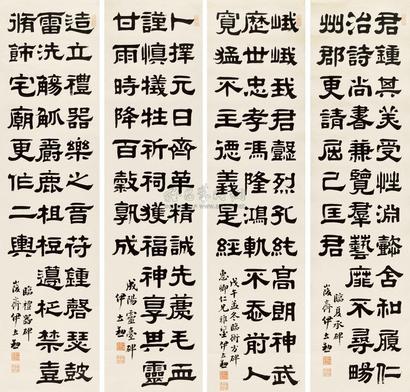 君鍾其美受性淵懿含和履仁
治詩尚書兼覽羣藝靡不尋暢
州郡更請屈己匡君
臨夏承碑
峻齋伊立勳
峨峨我君懿烈孔純高朗神武
歷世忠孝馮隆鴻軌不忝前人
寬猛不主德義是經
戊午孟冬臨衡方碑
惠卿仁兄雅鑒 伊立勳
卜擇元日齊革精誠先薦毛血
謹慎犧牲祈祠獲福神享其靈
甘雨時降百穀孰成
成陽靈臺碑
伊立勳
造立禮器樂之音苻鍾磬瑟鼓
雷洗觴觚爵鹿柤梪籩柉禁壺
脩飾宅廟更作二輿
臨禮器碑
峻齋伊立勳